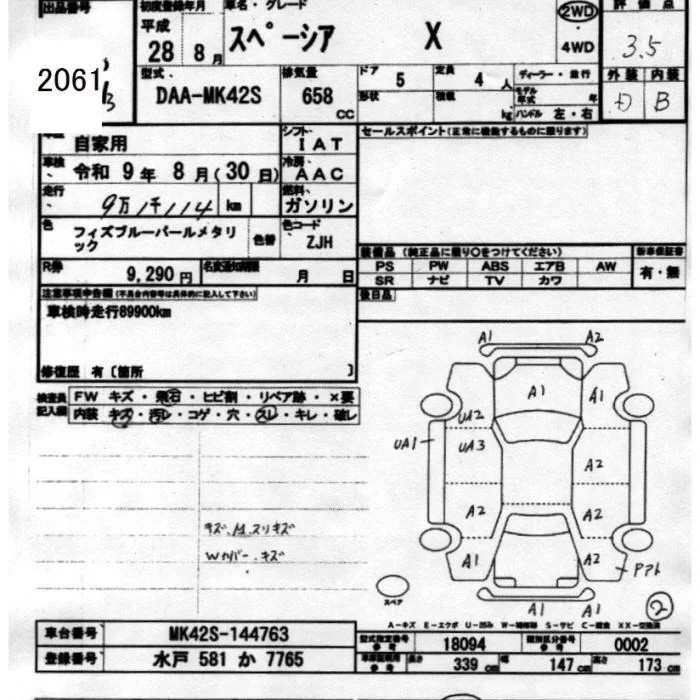 出品番号
2061
初度登録年月
平成
28 8 月
車名・グレード
スペーシア X
2WD
・
4WD
評価点
3.5
外装 内装
D B
型式
DAA-MK42S
排気量
658
CC
ドア 5
形状
定員 4 人
積載 kg
ディーラー・並行
モデル年式 年
ハンドル 左・右
自家用
シフト
IAT
車検 令和 9 年 8 月 ( 30 日)
冷房
AAC
走行 9万1千114 km
燃料
ガソリン
色
フィズブルーパールメタリック
色替
色コード
ZJH
R券 9,290 円
名変通知期限 月 日
セールスポイント(正常に機能するものに限ります)
装備品 (純正品に限り○をつけてください)
PS PW ABS エアB AW
SR ナビ TV カワ
新車保証書
有・無
後日品
注意事項申告欄(不具合内容等は具体的に記入して下さい)
車検時走行89900km
修復歴 有〔箇所 〕
検査員記入欄
FW キズ・飛石・ヒビ割・リペア跡・×要
内装 キズ・汚レ・コゲ・穴・スレ・キレ・破レ
キズ、M、スリキズ
Wカバー・キズ
A1 A2
A1 A1
UA2
UA1 UA3
A2
A2 A2
A1 A2
Pアト
A1 A1
スペア
2
A-キズ E-エクボ U-凹み W-補修跡 S-サビ C-腐食 XX-交換済
車台番号 MK42S-144763
登録番号 水戸 581 か 7765
型式指定番号 参考 18094
類別区分番号 参考 0002
車庫証明用 参考 長さ 339 cm 幅 147 cm 高さ 173 cm